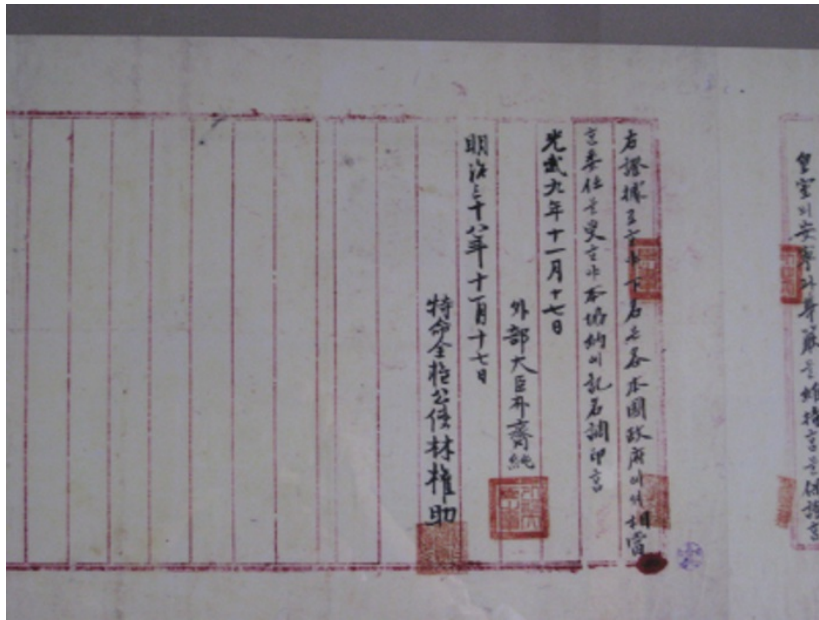 皇室의安寧과尊嚴을維持ᄒᆞᆷ을保證ᄒᆞᆷ
右證據로ᄒᆞ야下名은各本國政府에셔相當
ᄒᆞᆫ委任을受ᄒᆞ야本協約에記名調印ᄒᆞᆷ
光武九年十一月十七日
外部大臣朴齊純
明治三十八年十一月十七日
特命全權公使林權助